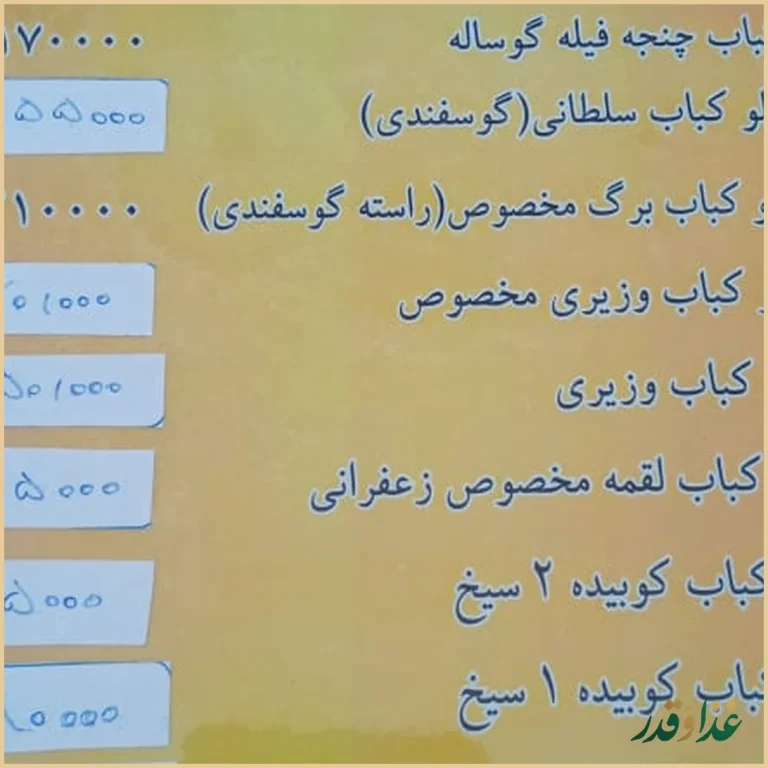 کباب چنجه فیله گوساله ۱۷۰۰۰۰
کباب سلطانی(گوسفندی) ۵۵۰۰۰
کباب برگ مخصوص(راسته گوسفندی) ۱۰۰۰۰
کباب وزیری مخصوص ۰۱۰۰۰
کباب وزیری ۵۰۱۰۰۰
کباب لقمه مخصوص زعفرانی ۵۰۰۰
کباب کوبیده ۲ سیخ ۵۰۰۰
کباب کوبیده ۱ سیخ ۰۰۰۰
غذا و قدر